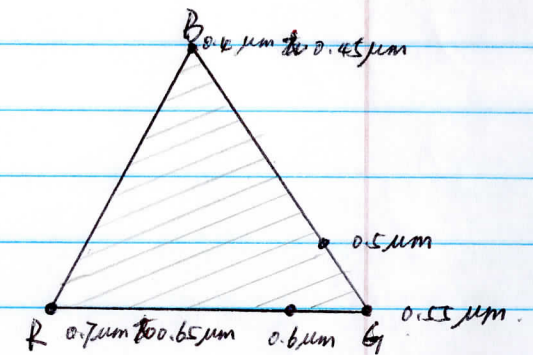 B
0.4 μm to 0.45 μm
0.5 μm
R 0.7μm to 0.65μm 0.6μm G 0.55 μm.